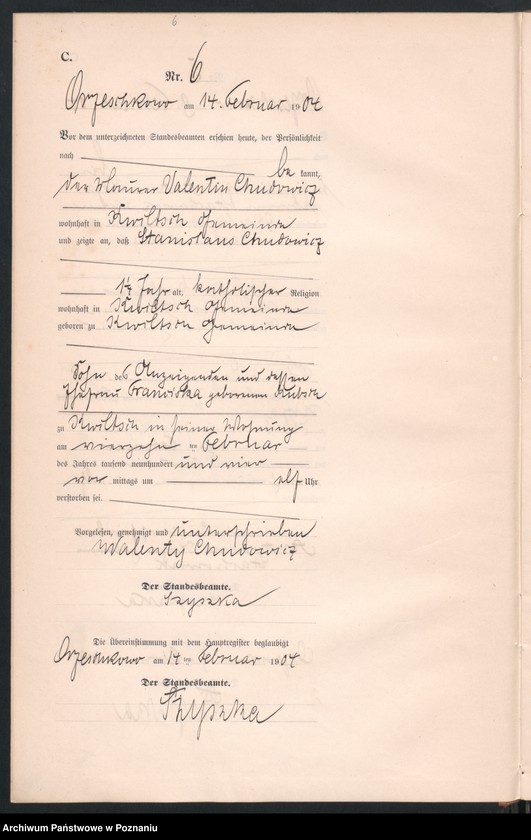 6
C.
Nr. 6
Orzeschkowo am 14. Februar 1904
Vor dem unterzeichneten Standesbeamten erschien heute, der Persönlichkeit
nach be kannt,
der Maurer Valentin Chudowicz
wohnhaft in Kwiltsch Gemeinde
und zeigte an, daß Stanislaus Chudowicz
1½ Jahr alt, katholischer Religion
wohnhaft in Kwiltsch Gemeinde
geboren zu Kwiltsch Gemeinde
Sohn des Anzeigenden und dessen
Ehefrau Franziska geborenen
zu Kwiltsch in seiner Wohnung
am vierzehn ten Februar
des Jahres tausend neunhundert und vier
vor mittags um elf Uhr
verstorben sei.
Vorgelesen, genehmigt und unterschrieben
Walenty Chudowicz
Der Standesbeamte.
Szyszka
Die Übereinstimmung mit dem Hauptregister beglaubigt
Orzeschkowo am 14 ten Februar 1904
Der Standesbeamte.
Szyszka
Archiwum Państwowe w Poznaniu